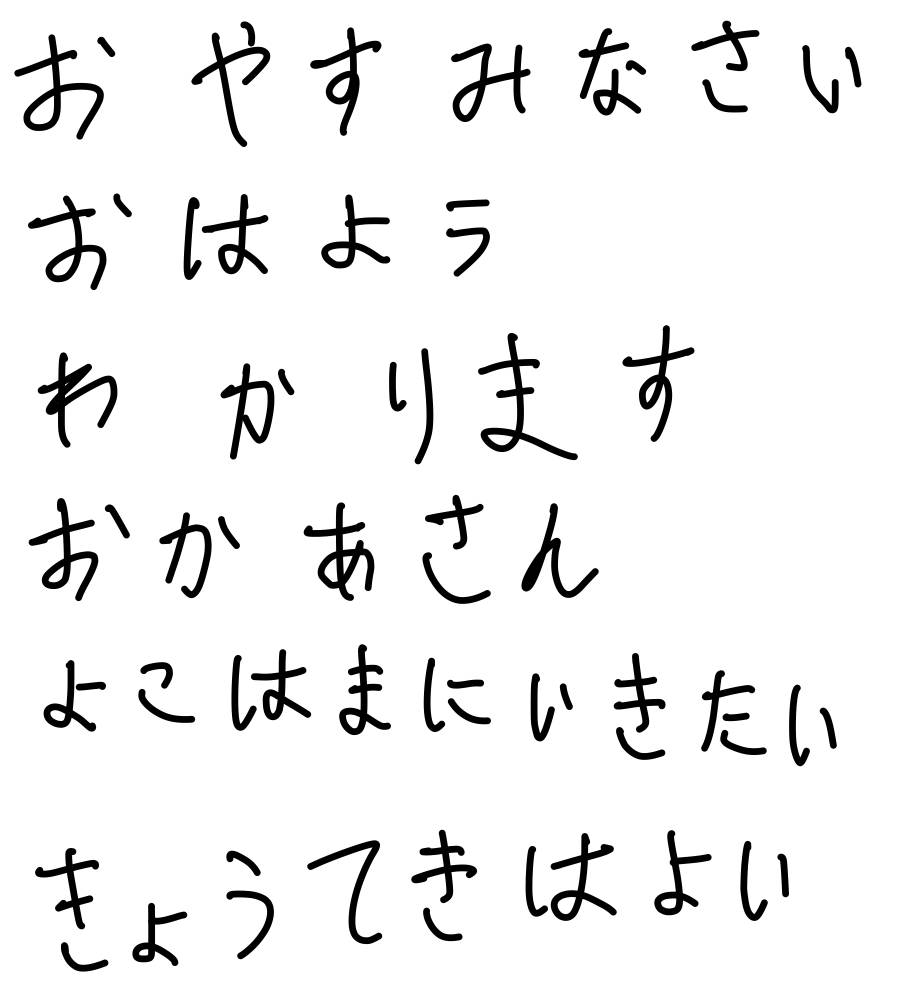 おやすみなさい
おはよう
わかります
おかあさん
よこはまにいきたい
きょうてきはよい